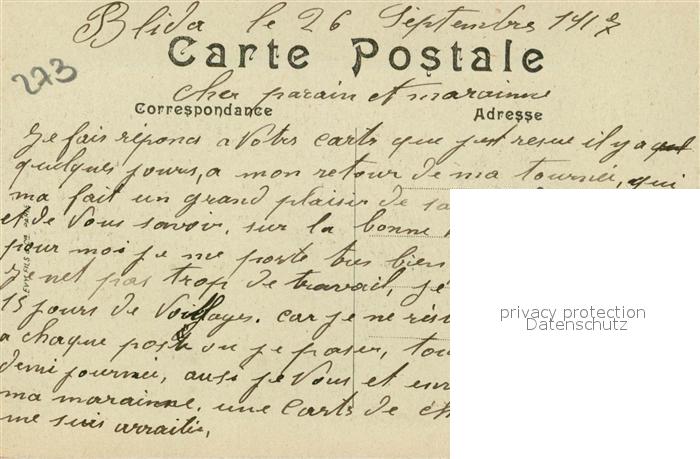 Blida le 26 Septembre 1917
Carte Postale
273
Cher parain et marainne
Correspondance
Adresse
Je fais répons a Votre carte que jest resue il y a
quelques jours, a mon retour de ma tournée, qui
ma fait un grand plaisir de
et de Vous savoir, sur la bonne
pour moi je me porte tres bien
Je net pas trop de travail, jé
15 jours de Voillages. car je ne
a chaque poste ou je passer,
demi journée, ausi je Vous et
ma marainne, une Carte de
me suis arraitér,
privacy protection
Datenschutz